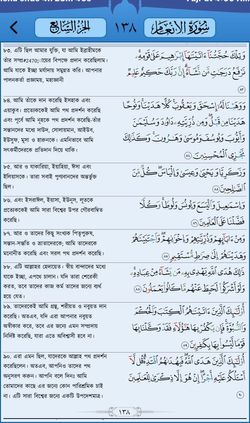 سورة الأنعام
١٣٨
الجزء السابع
৮৩. এটি ছিল আমার যুক্তি, যা আমি ইব্রাহীমকে
তাঁর সম্প্রদায়ের বিপক্ষে প্রদান করেছিলাম।
আমি যাকে ইচ্ছা মর্যাদায় সমুন্নত করি। আপনার
পালনকর্তা প্রজ্ঞাময়, মহাজ্ঞানী
وَتِلْكَ حُجَّتُنَا ءَاتَيْنَٰهَا إِبْرَٰهِيمَ عَلَىٰ قَوْمِهِۦ
نَرْفَعُ دَرَجَٰتٍ مَّن نَّشَآءُ إِنَّ رَبَّكَ حَكِيمٌ عَلِيمٌ
৮৪. আমি তাঁকে দান করেছি ইসহাক এবং
এয়াকুব। প্রত্যেককেই আমি পথ প্রদর্শন করেছি
এবং পূর্বে আমি নূহকে পথ প্রদর্শন করেছি-তাঁর
সন্তানদের মধ্যে দাউদ, সোলায়মান, আইউব,
ইউসুফ, মূসা ও হারুনকে। এমনিভাবে আমি
সৎকর্মীদেরকে প্রতিদান দিয়ে থাকি।
وَوَهَبْنَا لَهُۥٓ إِسْحَٰقَ وَيَعْقُوبَ كُلًّا هَدَيْنَا وَنُوحًا
هَدَيْنَا مِن قَبْلُ وَمِن ذُرِّيَّتِهِۦ دَاوُۥدَ وَسُلَيْمَٰنَ
وَأَيُّوبَ وَيُوسُفَ وَمُوسَىٰ وَهَٰرُونَ وَكَذَٰلِكَ
نَجْزِى ٱلْمُحْسِنِينَ
৮৫. আর ও যাকারিয়া, ইয়াহিয়া, ঈসা এবং
ইলিয়াসকে। তারা সবাই পুণ্যবানদের অন্তর্ভুক্ত
ছিল।
وَزَكَرِيَّا وَيَحْيَىٰ وَعِيسَىٰ وَإِلْيَاسَ كُلٌّ مِّنَ
ٱلصَّٰلِحِينَ
৮৬. এবং ইসরাঈল, ইয়াসা, ইউনূস, লূতকে
প্রত্যেককেই আমি সারা বিশ্বের উপর গৌরবান্বিত
করেছি।
وَإِسْمَٰعِيلَ وَٱلْيَسَعَ وَيُونُسَ وَلُوطًا وَكُلًّا
فَضَّلْنَا عَلَى ٱلْعَٰلَمِينَ
৮৭. আর ও তাদের কিছু সংখ্যক পিতৃপুরুষ,
সন্তান-সন্ততি ও ভ্রাতাদেরকে; আমি তাদেরকে
মনোনীত করেছি এবং সরল পথ প্রদর্শন করেছি।
وَمِنْ ءَابَآئِهِمْ وَذُرِّيَّٰتِهِمْ وَإِخْوَٰنِهِمْ وَٱجْتَبَيْنَٰهُمْ
وَهَدَيْنَٰهُمْ إِلَىٰ صِرَٰطٍ مُّسْتَقِيمٍ
৮৮. এটি আল্লাহর হেদায়েত। স্বীয় বান্দাদের মধ্যে
যাকে ইচ্ছা, এপথে চালান। যদি তারা শেরেকী
করত, তবে তাদের কাজ কর্ম তাদের জন্যে ব্যর্থ
হয়ে যেত।
ذَٰلِكَ هُدَى ٱللَّهِ يَهْدِى بِهِۦ مَن يَشَآءُ مِنْ عِبَادِهِۦ
وَلَوْ أَشْرَكُوا۟ لَحَبِطَ عَنْهُم مَّا كَانُوا۟ يَعْمَلُونَ
৮৯. তাদেরকেই আমি গ্রন্থ, শরীয়ত ও নবুয়ত দান
করেছি। অতএব, যদি এরা আপনার নবুয়ত
অস্বীকার করে, তবে এর জন্যে এমন সম্প্রদায়
নির্দিষ্ট করেছি, যারা এতে অবিশ্বাসী হবে না।
أُو۟لَٰٓئِكَ ٱلَّذِينَ ءَاتَيْنَٰهُمُ ٱلْكِتَٰبَ وَٱلْحُكْمَ
وَٱلنُّبُوَّةَ فَإِن يَكْفُرْ بِهَا هَٰٓؤُلَآءِ فَقَدْ وَكَّلْنَا بِهَا قَوْمًا
لَّيْسُوا۟ بِهَا بِكَٰفِرِينَ
৯০. এরা এমন ছিল, যাদেরকে আল্লাহ পথ প্রদর্শন
করেছিলেন। অতএব, আপনিও তাদের পথ
অনুসরণ করুন। আপনি বলে দিনঃ আমি
তোমাদের কাছে এর জন্যে কোন পারিশ্রমিক চাই
না। এটি সারা বিশ্বের জন্যে একটি উপদেশমাত্র।
أُو۟لَٰٓئِكَ ٱلَّذِينَ هَدَى ٱللَّهُ فَبِهُدَىٰهُمُ ٱقْتَدِهْ قُل لَّآ
أَسْـَٔلُكُمْ عَلَيْهِ أَجْرًا إِنْ هُوَ إِلَّا ذِكْرَىٰ لِلْعَٰلَمِينَ
١٣٨